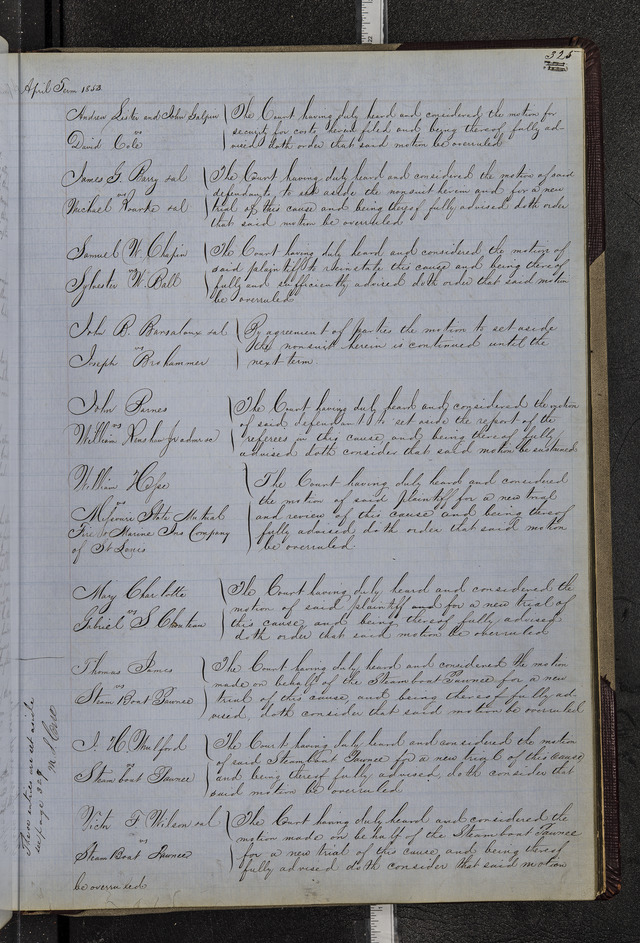 325
April Term 1853
Andrew Lester and John Galpin
vs
David Cole
The Court having duly heard and considered the motion for
security for costs herein filed and being thereof fully ad-
vised doth order that said motion be overruled
James G Barry et al
vs
Michael Rourke et al
The Court having duly heard and considered the motion of said
defendants to set aside the nonsuit herein and for a new
trial of this cause and being thereof fully advised doth order
that said motion be overruled
Samuel W. Chapin
vs
Sylvester W. Ball
The Court having duly heard and considered the motion of
said plaintiff to reinstate this cause and being thereof
fully and sufficiently advised doth order that said motion
be overruled
John B Barsaloux et al
vs
Joseph Brohammer
By agreement of parties the motion to set aside
the nonsuit herein is continued until the
next term
John Barnes
vs
William Renshaw Jr admr &c
The Court having duly heard and considered the motion
of said defendant to set aside the report of the
referees in this cause, and being thereof fully
advised doth consider that said motion be sustained
William
vs
Missouri State Mutual
Fire & Marine Ins Company
of St Louis
The Court having duly heard and considered
the motion of said plaintiff for a new trial
and review of this cause and being thereof
fully advised, doth order that said motion
be overruled
Mary Charlotte
vs
Gabriel S Chouteau
The Court having duly heard and considered the
motion of said plaintiff and for a new trial of
this cause, and being thereof fully advised
doth order that said motion be overruled
Thomas James
vs
Steam Boat Pawnee
The Court having duly heard and considered the motion
made on behalf of the Steamboat Pawnee for a new
trial of this cause, and being thereof fully ad-
vised, doth consider that said motion be overruled
J. H. Mulford
vs
Steam boat Pawnee
The Court having duly heard and considered the motion
of said Steamboat Pawnee for a new trial of this cause
and being thereof fully advised, doth consider that
said motion be overruled
Victor F Wilson et al
vs
Steam Boat Pawnee
The Court having duly heard and considered the
motion made on behalf of the Steamboat Pawnee
for a new trial of this cause, and being thereof
fully advised doth consider that said motion
be overruled
These entries are set aside
see page 329